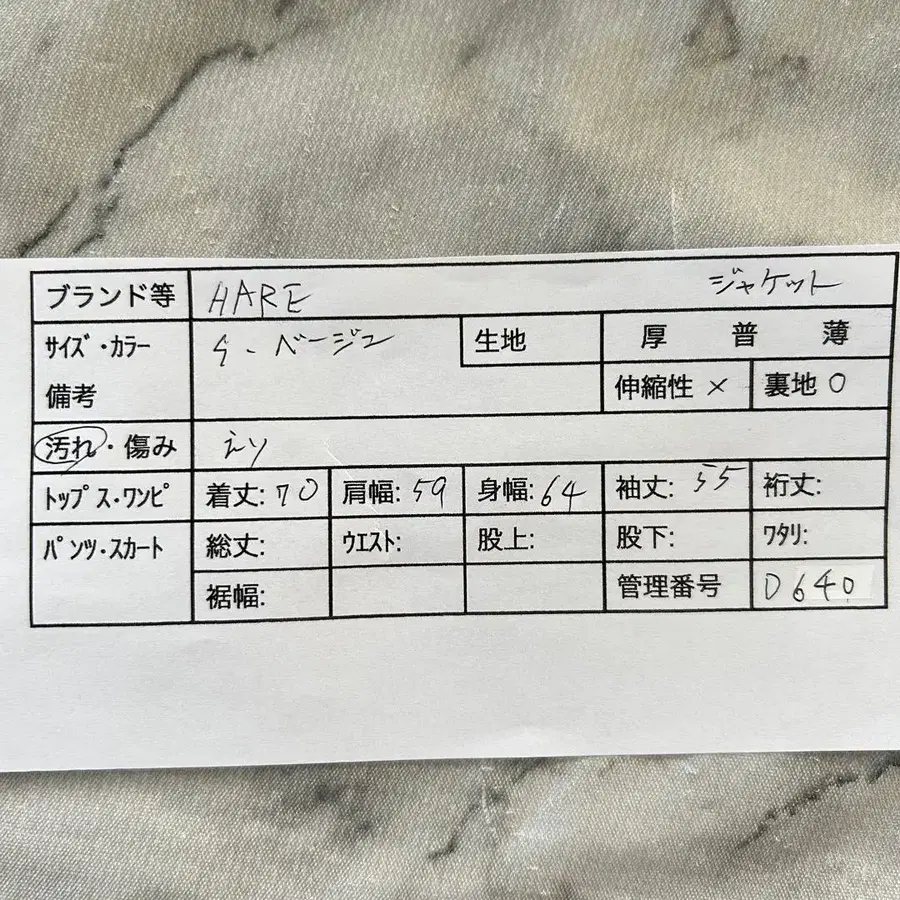 ブランド等 HARE ジャケット
サイズ・カラー ベージュ 生地 厚 普 薄
備考 伸縮性 × 裏地 ○
汚れ・傷み えり
トップス・ワンピ 着丈: 70 肩幅: 59 身幅: 64 袖丈: 55 裄丈:
パンツ・スカート 総丈: ウエスト: 股上: 股下: ワタリ:
裾幅: 管理番号 D640